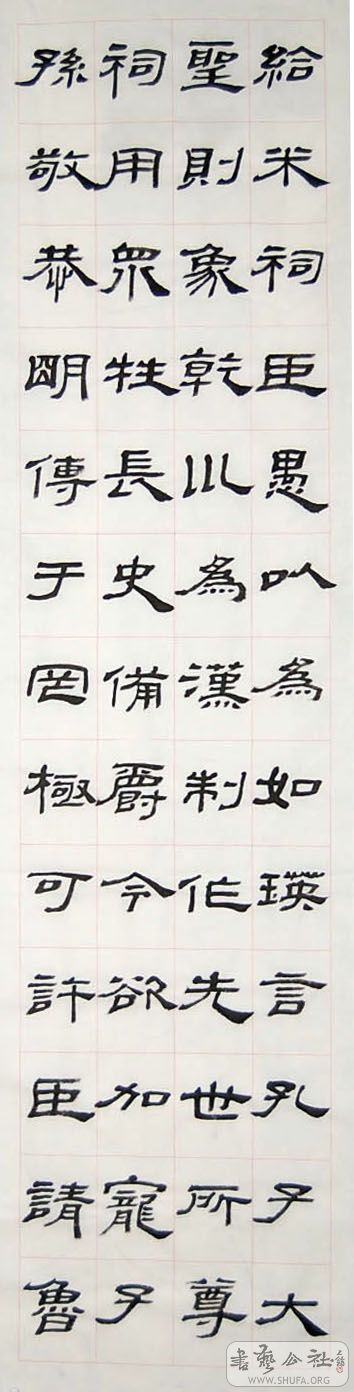 給米祠臣愚以為如瑛言孔子大
聖則象乾川為漢制作先世所尊
祠用眾牲長史備爵今欲加寵子
孫敬恭明傳于罔極可許臣請魯
書藝公社
WWW.SHUFA.ORG